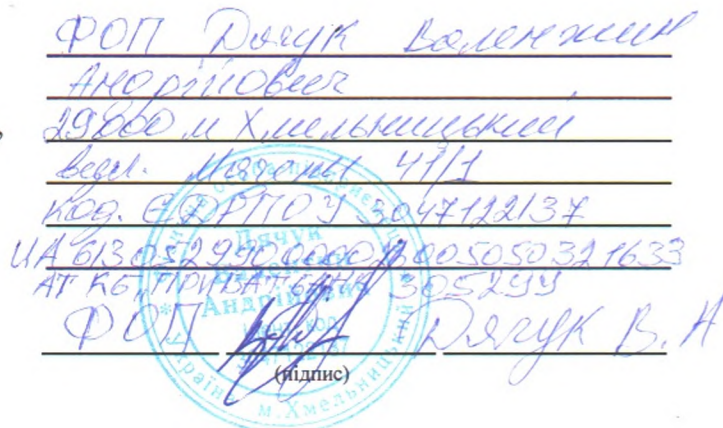 ФОП Дячук Валентин
Андрійович
29000 м Хмельницький
вул. 41/1
код. ЄДРПОУ 3047122137
АТ КБ ПРИВАТБАНК 305299
ФОП Дячук В. А
(підпис)
Дячук
Андрійович
Україна м.Хмельницький